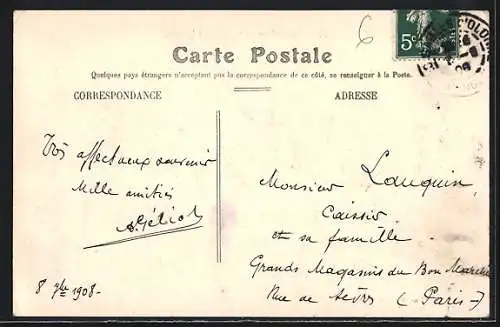 6
5c
Carte Postale
Quelques pays étrangers n'acceptant pas la correspondance de ce côté, se renseigner à la Poste.
CORRESPONDANCE
ADRESSE
Très affectueux souvenir
Mille amitiés
8 7bre 1908-
Monsieur Lauquin
Caissier
et sa famille
Grands Magasins du Bon Marché
Rue de Sèvres (Paris-)